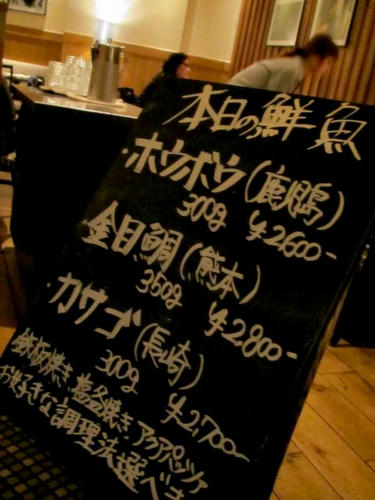 本日の鮮魚
・ホウボウ(鹿児島)
300g ¥2600-
金目鯛(熊本)
350g ¥2800-
・カサゴ(長崎)
300g ¥2,700-
鉄板焼き 塩釜焼き アクアパッツァ
お好きな調理法選べま